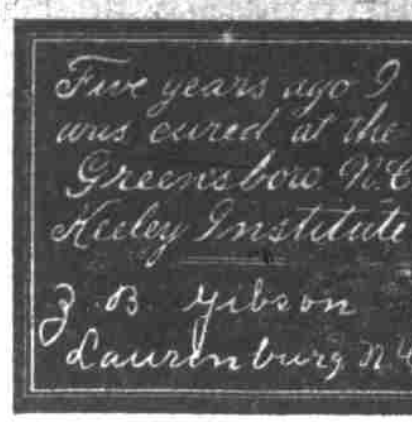 Five years ago I
was cured at the
Greensboro N.C
Keeley Institute
Z. B. Gibson
Laurenburg N.C